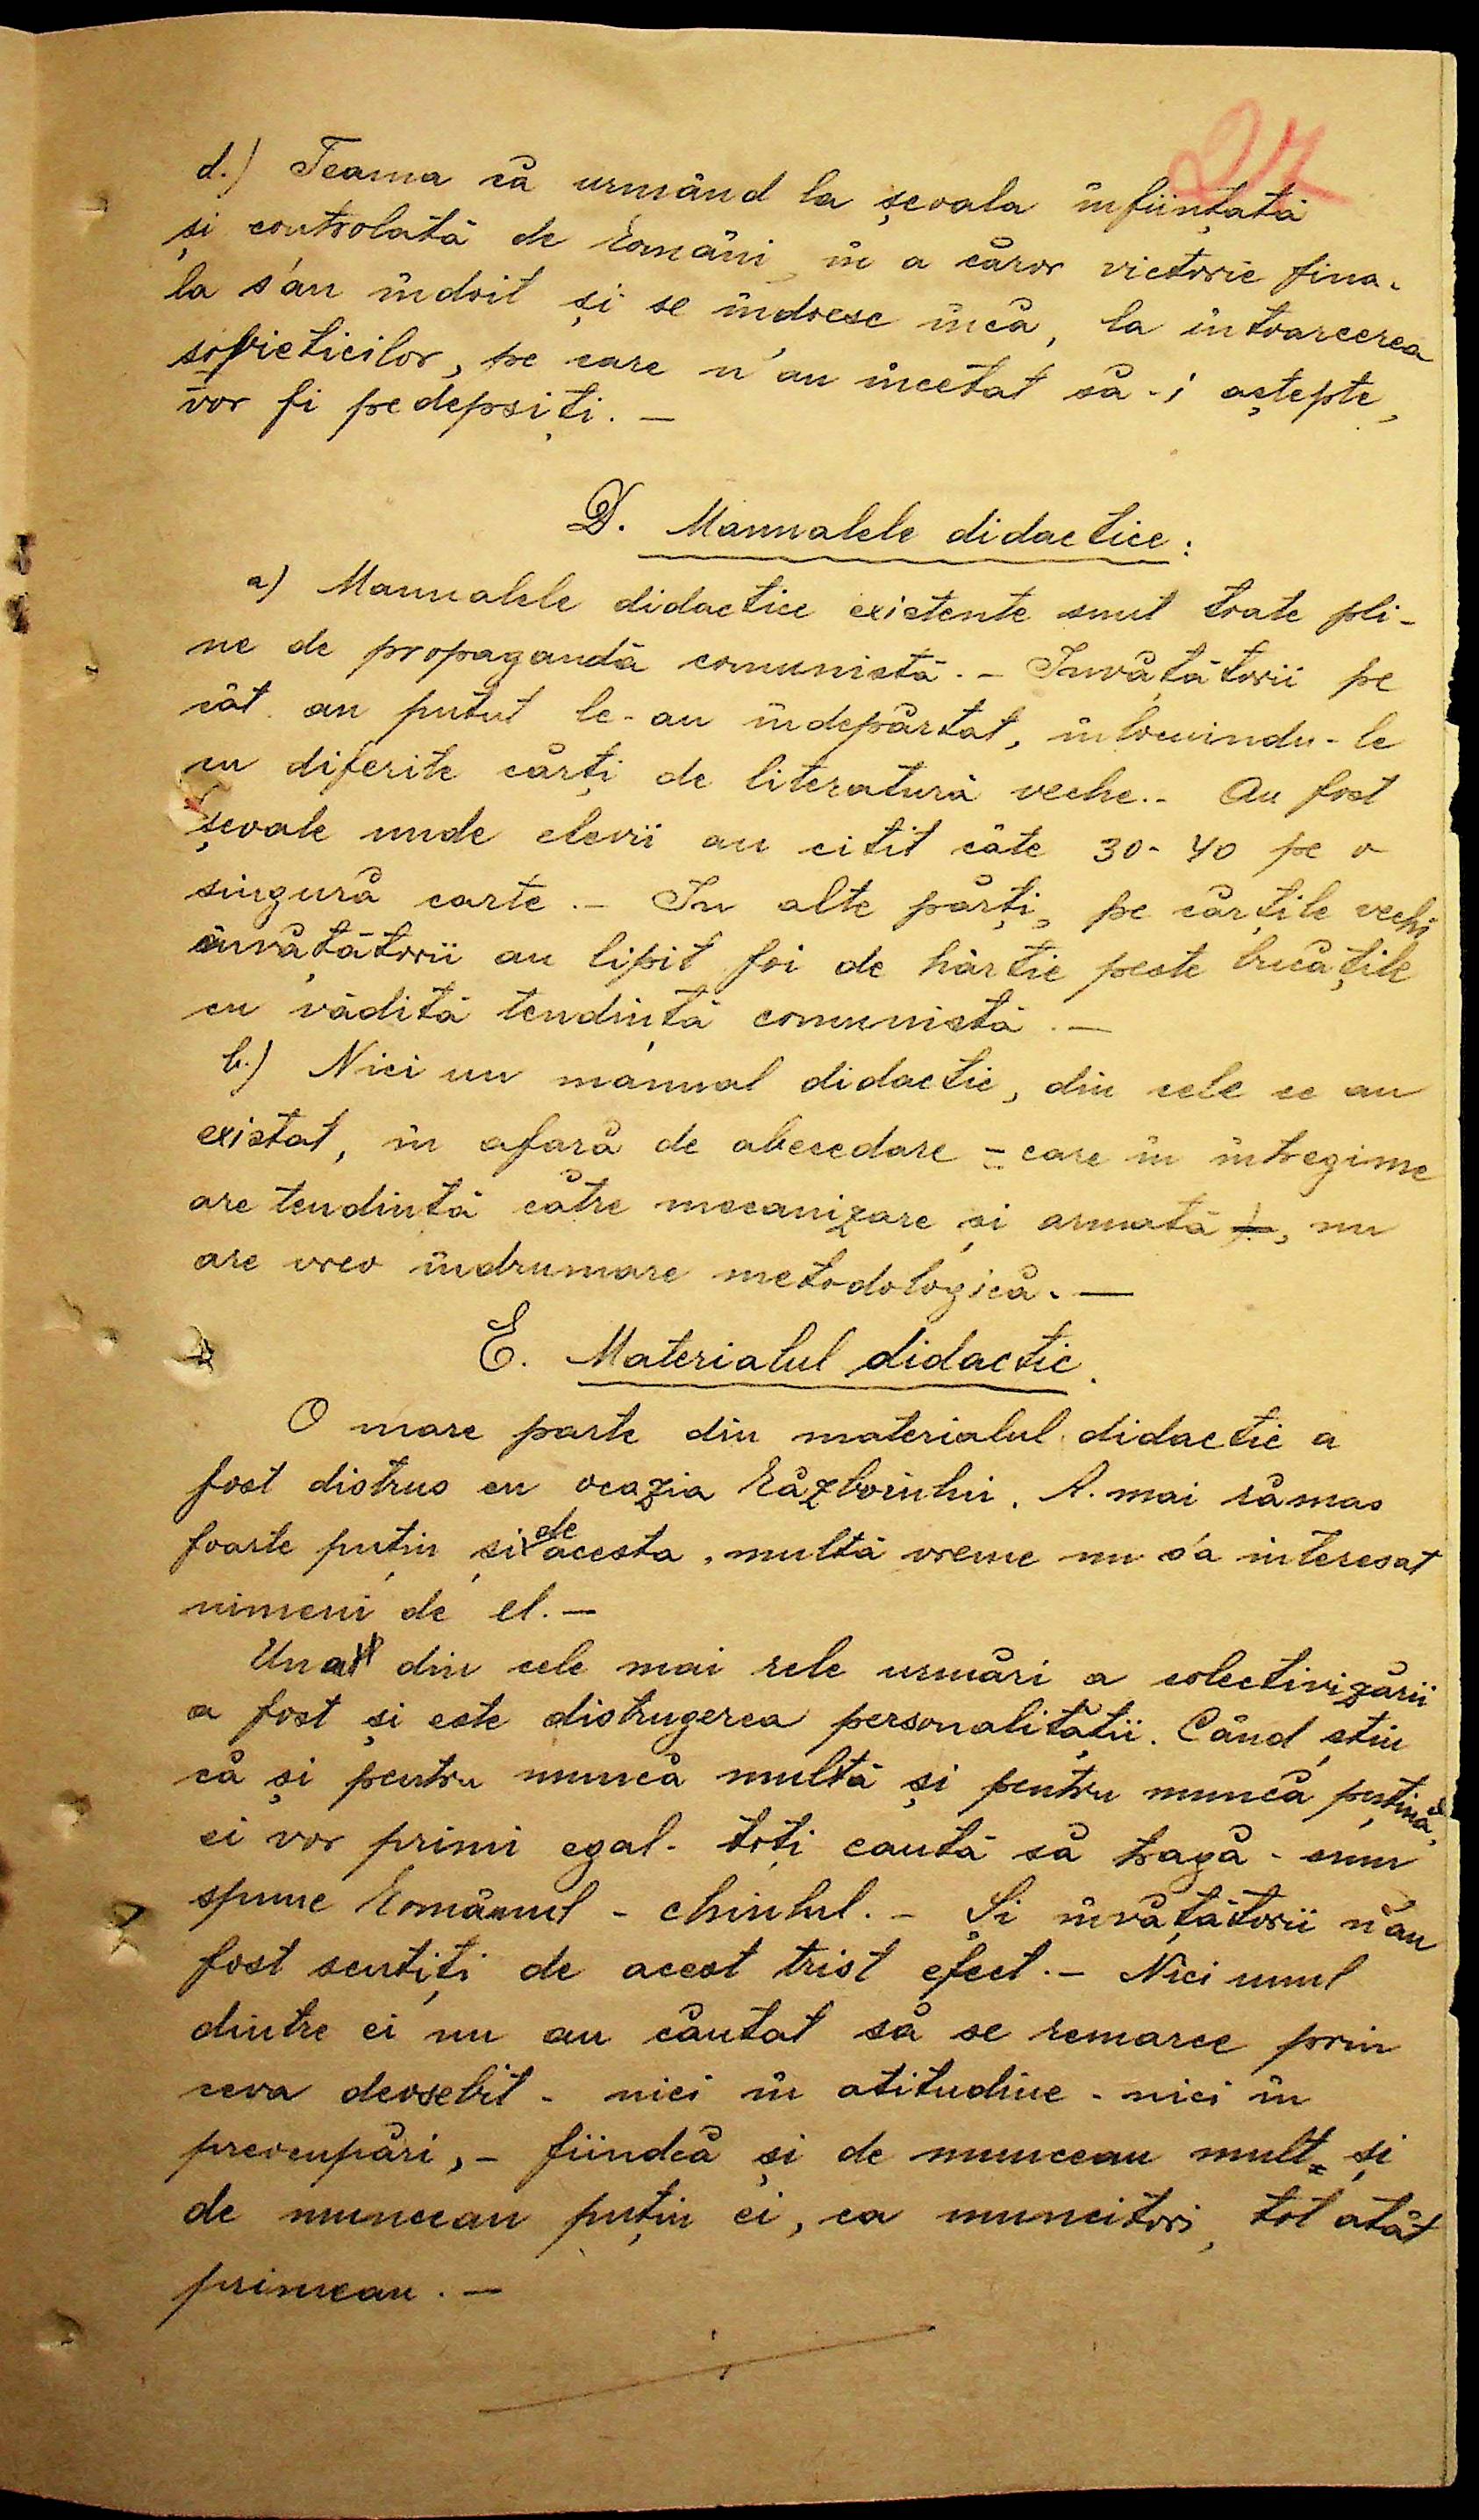 27
d.) Teama că urmând la școala înființată
și controlată de Români, în a căror victorie fina-
la s'au îndoit și se îndoesc încă, la întoarcerea
sovieticilor, pe care n'au încetat să-i aștepte,
vor fi pedepsiți. —
D. Manualele didactice:
a) Manualele didactice existente sunt toate pli-
ne de propagandă comunistă. - Invățătorii pe
cât au putut le-au îndepărtat, înlocuindu-le
cu diferite cărți de literatură veche. - Au fost
școale unde elevii au citit câte 30-40 pe o
singură carte. - In alte părți, pe cărțile vechi
învățătorii au lipit foi de hârtie peste bucățile
cu vădită tendință comunistă. —
b.) Nici un manual didactic, din cele ce au
existat, în afară de abecedare - care în întregime
are tendintă către mecanizare și armată -, nu
are vreo îndrumare metodologică. —
E. Materialul didactic.
O mare parte din materialul didactic a
fost distrus cu ocazia Războiului. A mai rămas
foarte puțin și de acesta, multă vreme nu s'a interesat
nimeni de el. —
Una din cele mai rele urmări a colectivizării
a fost și este distrugerea personalității. Când știu
că și pentru muncă multă și pentru muncă puțină,
ei vor primi egal - toți caută să tragă - cum
spune Românul - chiulul. - Și învățătorii n'au
fost scutiți de acest trist efect. - Nici unul
dintre ei nu au căutat să se remarce prin
ceva deosebit - nici în atitudine - nici în
preocupări, - fiindcă și de munceau mult și
de munceau puțin ei, ca muncitori, tot atât
primeau. —